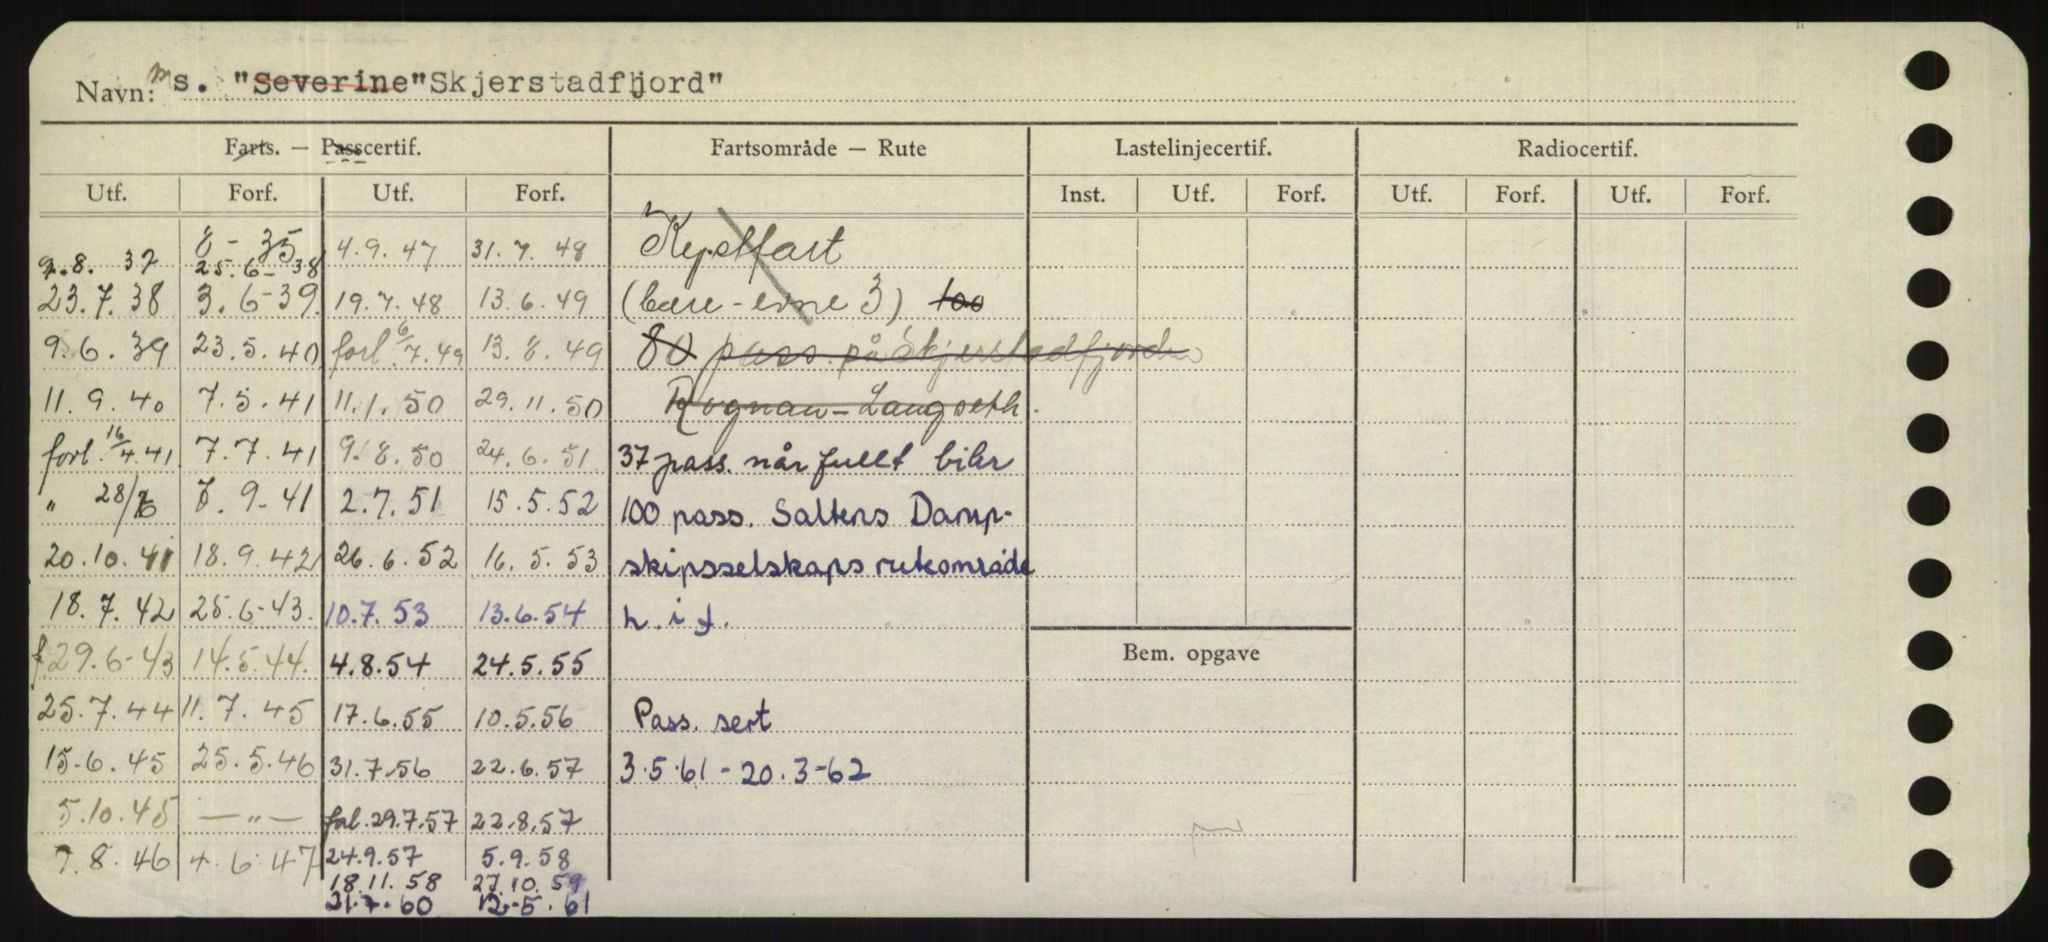 Navn: Ms. "Severine" Skjerstadfjord"
Farts. — Passcertif. Fartsområde — Rute Lastelinjecertif. Radiocertif.
Utf. Forf. Utf. Forf. Inst. Utf. Forf. Utf. Forf. Utf. Forf.
8 - 35
9.8. 37 25.6-38 4.9.47 31.7.48 Kystfart
23.7.38 3.6-39. 19.7.48 13.6.49 (bære-evne 3) 100
9.6.39 23.5.40 forl 6/7.49 13.8.49 80 pass. på Skjerstadfjorden
11.9.40 7.5.41 11.1.50 29.11.50 Rognan - Langseth.
forl. 16/4.41 7.7.41 9.8.50 24.6.51 37 pass. når fullt biler
" 28/6 7.9-41 2.7.51 15.5.52 100 pass. Saltens Damp-
20.10.41 18.9.42 26.6.52 16.5.53 skipsselskaps ruteområde
18.7.42 25.6-43. 10.7.53 13.6.54 h.i.f.
f.29.6-43 14.5.44. 4.8.54 24.5.55 Bem. opgave
25.7.44 11.7.45 17.6.55 10.5.56 Pass. sert
15.6.45 25.5.46 31.7.56 22.6.57 3.5.61 - 20.3-62
5.10.45 — " — forl. 29.7.57 22.8.57
7.8.46 4.6.47 24.9.57 5.9.58
18.11.58 27.10.59
21.7.60 12.5.61